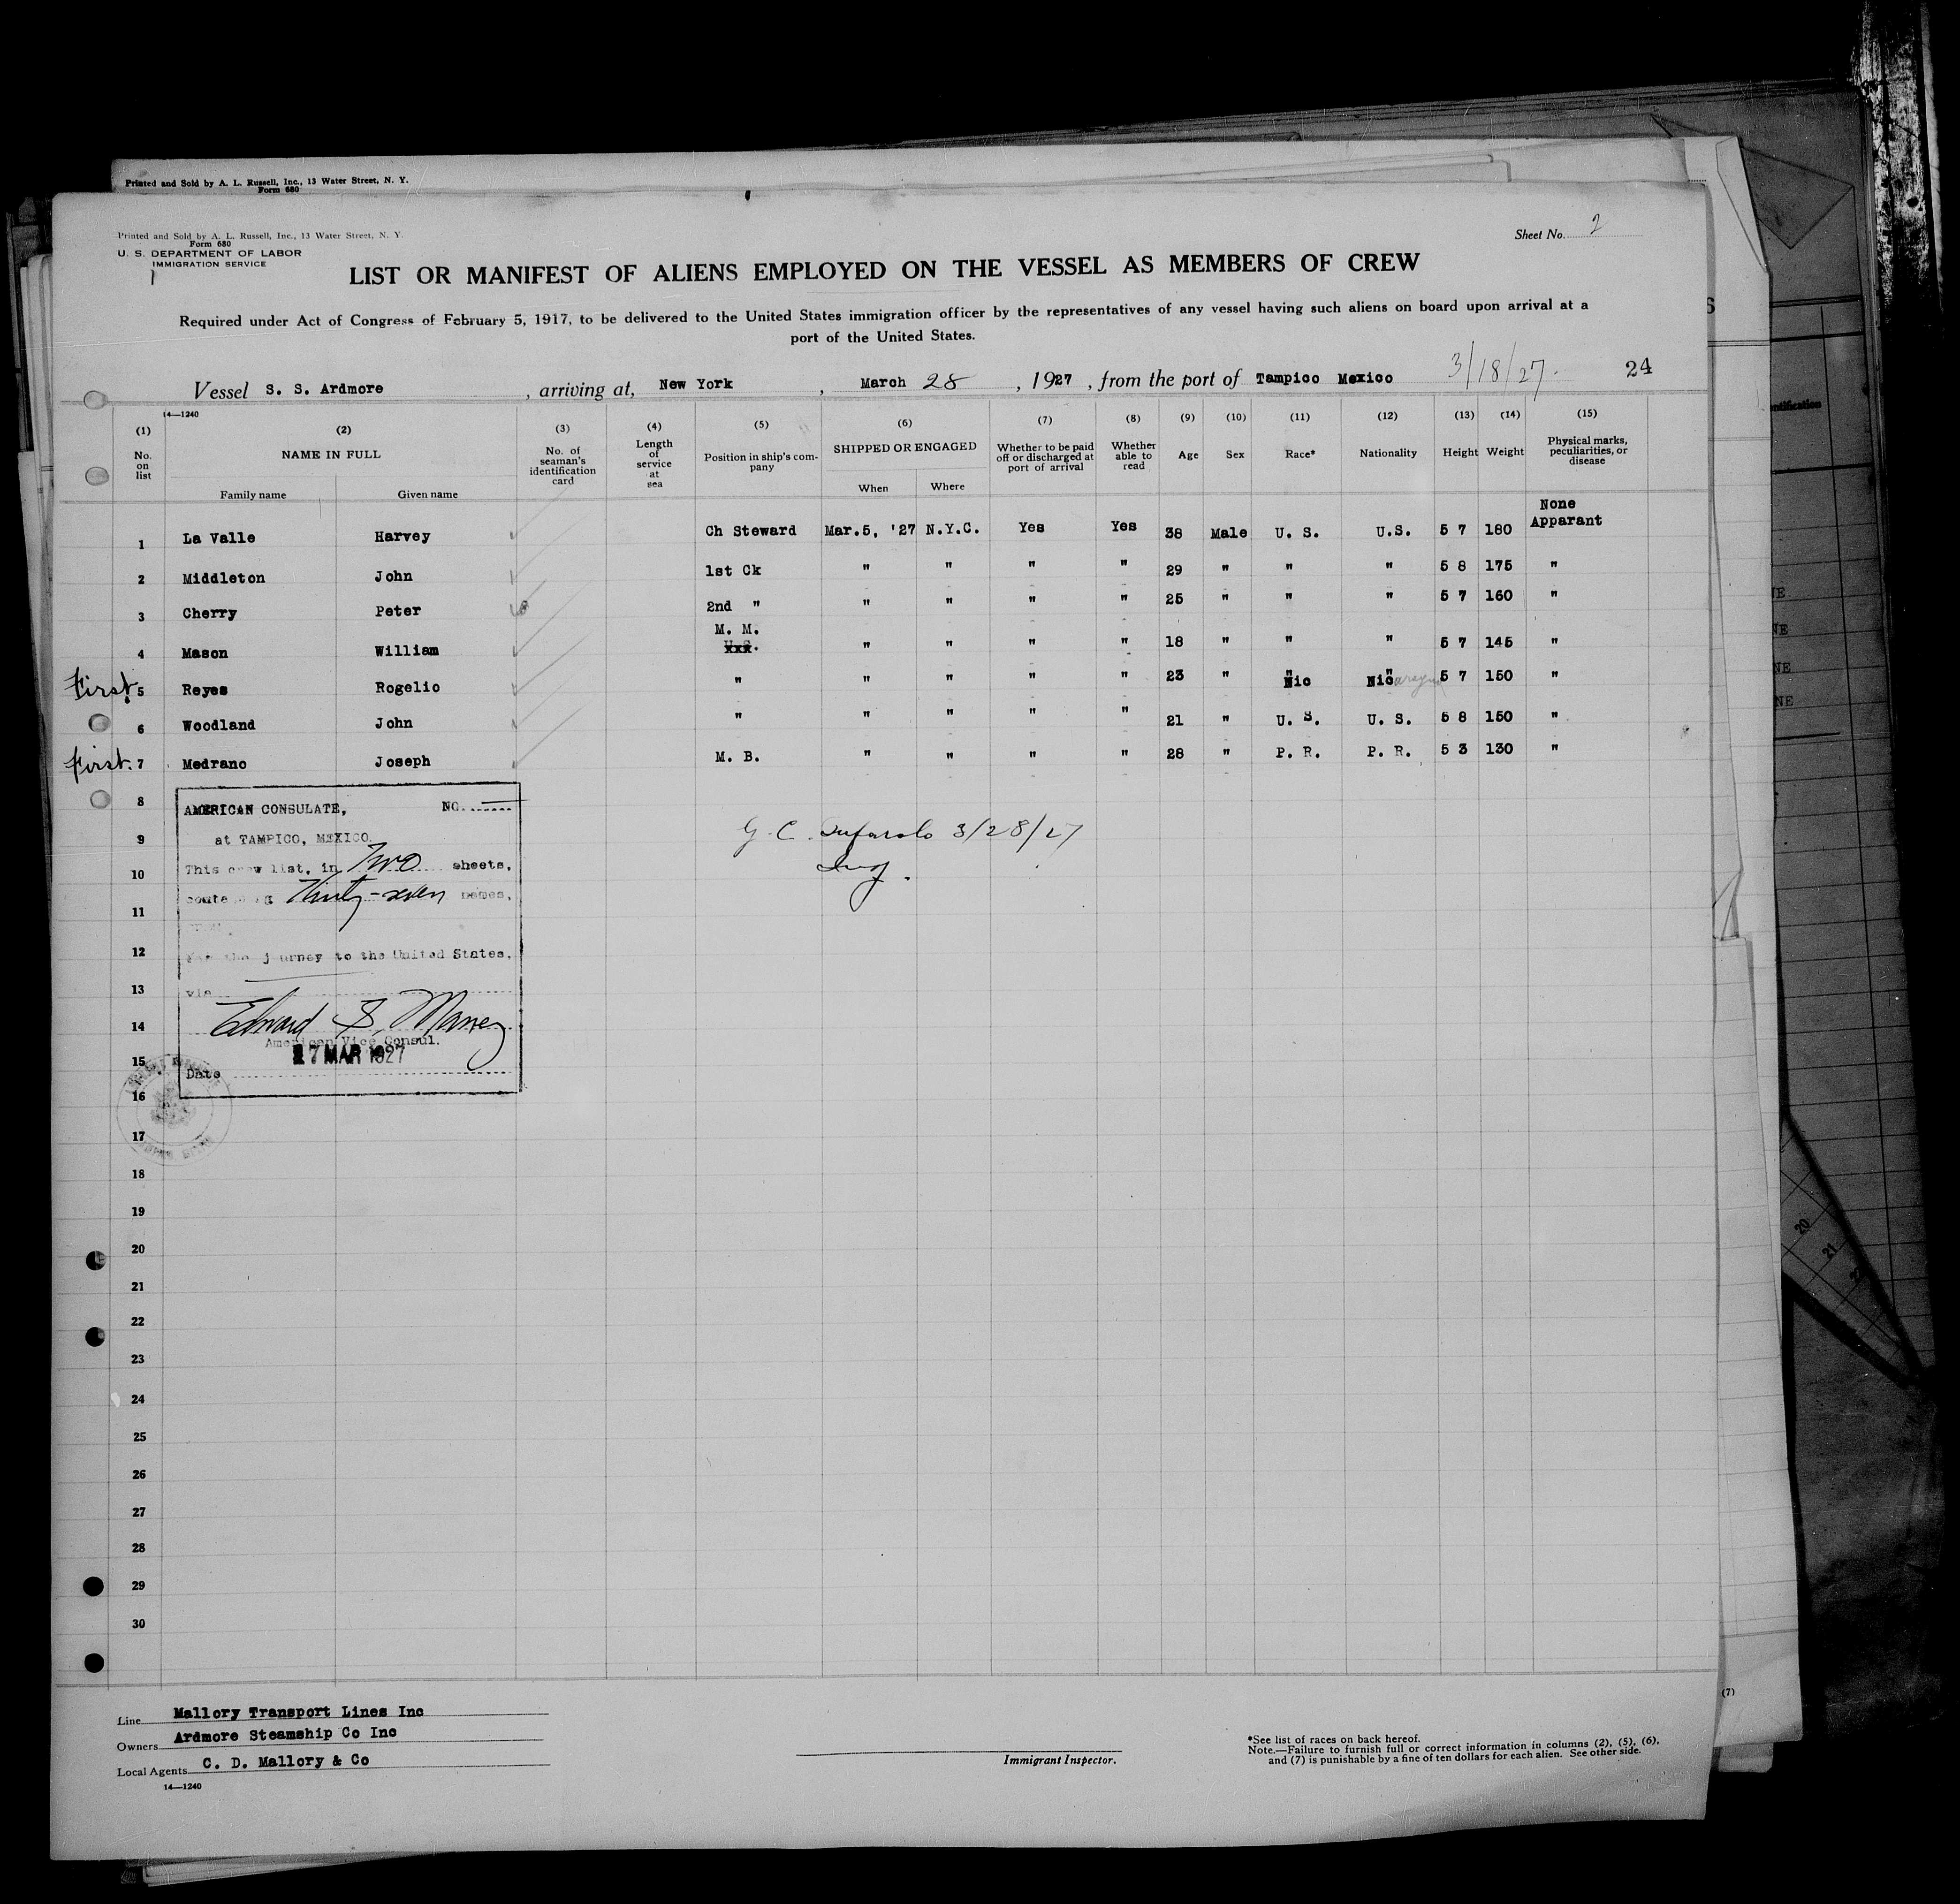 Printed and Sold by A. L. Russell, Inc., 13 Water Street, N. Y.
Form 680
Printed and Sold by A. L. Russell, Inc., 13 Water Street, N. Y.
Form 680
U. S. DEPARTMENT OF LABOR
IMMIGRATION SERVICE
Sheet No. 2
LIST OR MANIFEST OF ALIENS EMPLOYED ON THE VESSEL AS MEMBERS OF CREW
Required under Act of Congress of February 5, 1917, to be delivered to the United States immigration officer by the representatives of any vessel having such aliens on board upon arrival at a
port of the United States.
Vessel S. S. Ardmore, arriving at, New York, March 28, 1927, from the port of Tampico Mexico 3/18/27. 24
14—1240
(1) No. on list
(2) NAME IN FULL
Family name Given name
(3) No. of seaman's identification card
(4) Length of service at sea
(5) Position in ship's company
(6) SHIPPED OR ENGAGED
When Where
(7) Whether to be paid off or discharged at port of arrival
(8) Whether able to read
(9) Age
(10) Sex
(11) Race*
(12) Nationality
(13) Height
(14) Weight
(15) Physical marks, peculiarities, or disease
1 La Valle Harvey Ch Steward Mar.5, '27 N.Y.C. Yes Yes 38 Male U. S. U.S. 5 7 180 None Apparant
2 Middleton John 1st Ck " " " " 29 " " " 5 8 175 "
3 Cherry Peter 2nd " " " " " 25 " " " 5 7 160 "
4 Mason William M. M. " " " " 18 " " " 5 7 145 "
First. 5 Reyes Rogelio " " " " " 23 " Nic Nic 5 7 150 "
6 Woodland John " " " " " 21 " U. S. U. S. 5 8 150 "
First. 7 Medrano Joseph M. B. " " " " 28 " P. R. P. R. 5 3 130 "
8
9
10
11
12
13
14
15
16
17
18
19
20
21
22
23
24
25
26
27
28
29
30
AMERICAN CONSULATE, NO.
at TAMPICO, MEXICO
This crew list, in Two sheets,
Thirty-seven names,
For the journey to the United States,
via
American Vice Consul.
17 MAR 1927
Date
G. C. 3/28/27
Line Mallory Transport Lines Inc
Owners Ardmore Steamship Co Inc
Local Agents C. D. Mallory & Co
14—1240
Immigrant Inspector.
*See list of races on back hereof.
Note.—Failure to furnish full or correct information in columns (2), (5), (6),
and (7) is punishable by a fine of ten dollars for each alien. See other side.
(7)
20
21